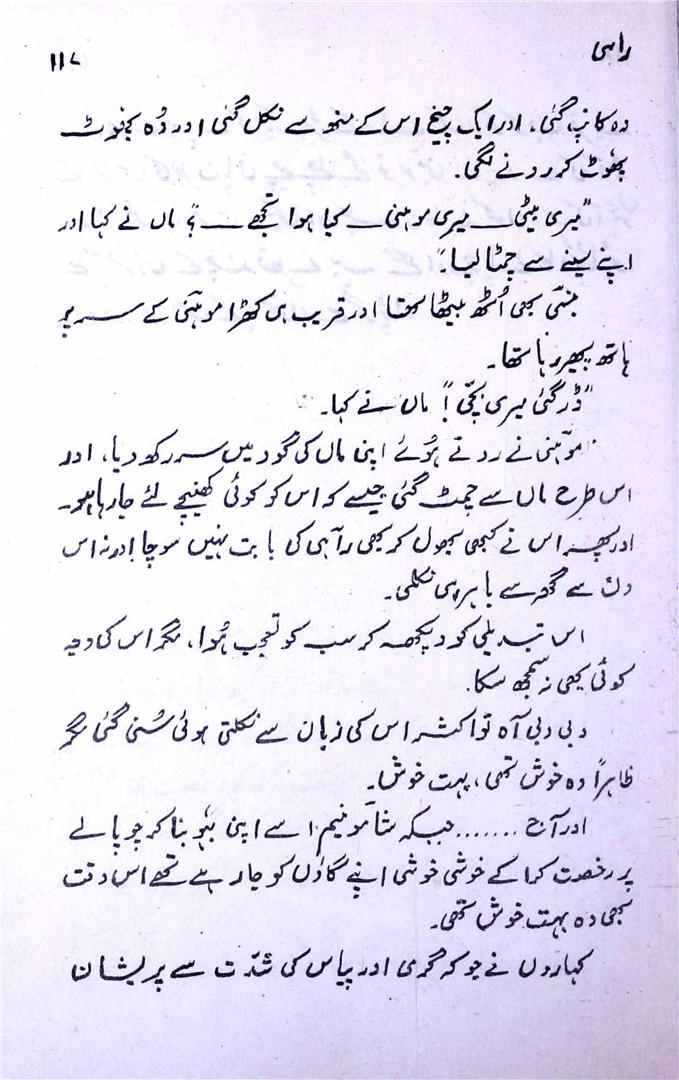 راہی ۱۱۷
وہ کانپ گئی، اور ایک چیخ اس کے منھ سے نکل گئی اور وُہ پھوٹ
پھوٹ کر رونے لگی۔
"میری بیٹی ــ میری موہنی ــ کیا ہوا تجھے ــ؟ ماں نے کہا اور
اپنے سینے سے چمٹا لیا۔"
بنسی بھی اُٹھ بیٹھا تھا اور قریب ہی کھڑا موہنی کے سر پر
ہاتھ پھیر رہا تھا۔
"ڈر گئی میری بچّی!" ماں نے کہا۔
موہنی نے روتے ہوُئے اپنی ماں کی گود میں سر رکھ دیا، اور
اس طرح ماں سے چمٹ گئی جیسے کہ اس کو کوئی کھینچے لئے جا رہا ہو۔
اور پھر اس نے کبھی بھول کر بھی راہی کی بابت نہیں سوچا اور نہ اس
دن سے گھر سے باہر ہی نکلی۔
اس تبدیلی کو دیکھ کر سب کو تعجب ہُوا، مگر اس کی وجہ
کوئی بھی نہ سمجھ سکا۔
دبی دبی آہ تو اکثر اس کی زبان سے نکلتی ہوئی سُنی گئی مگر
ظاہراً وہ خوش تھی، بہت خوش۔
اور آج ....... جبکہ شامو نیم اسے اپنی بہُو بنا کر چوپالے
پر رخصت کرا کے خوشی خوشی اپنے گاؤں کو جا رہے تھے اس وقت
بھی وہ بہت خوش تھی۔
کہاروں نے جو کہ گرمی اور پیاس کی شدّت سے پریشان